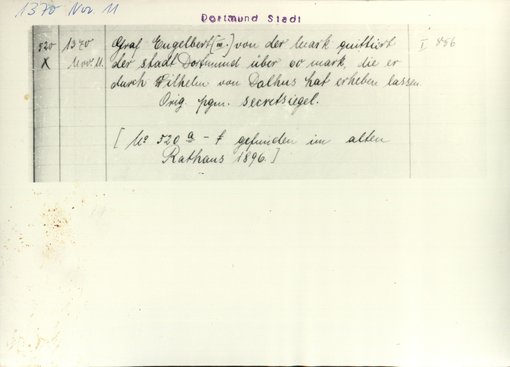 1370 Nov. 11
Dortmund Stadt
520 1370 Graf Engelbert [III.] von der Mark quittiert I 456
X Nov. 11. der Stadt Dortmund über 60 Mark, die er
durch Wilhelm von Dalhus hat erheben lassen.
Orig. pgm. Secretsiegel.
[No 520 a - f gefunden im alten
Rathaus 1896.]